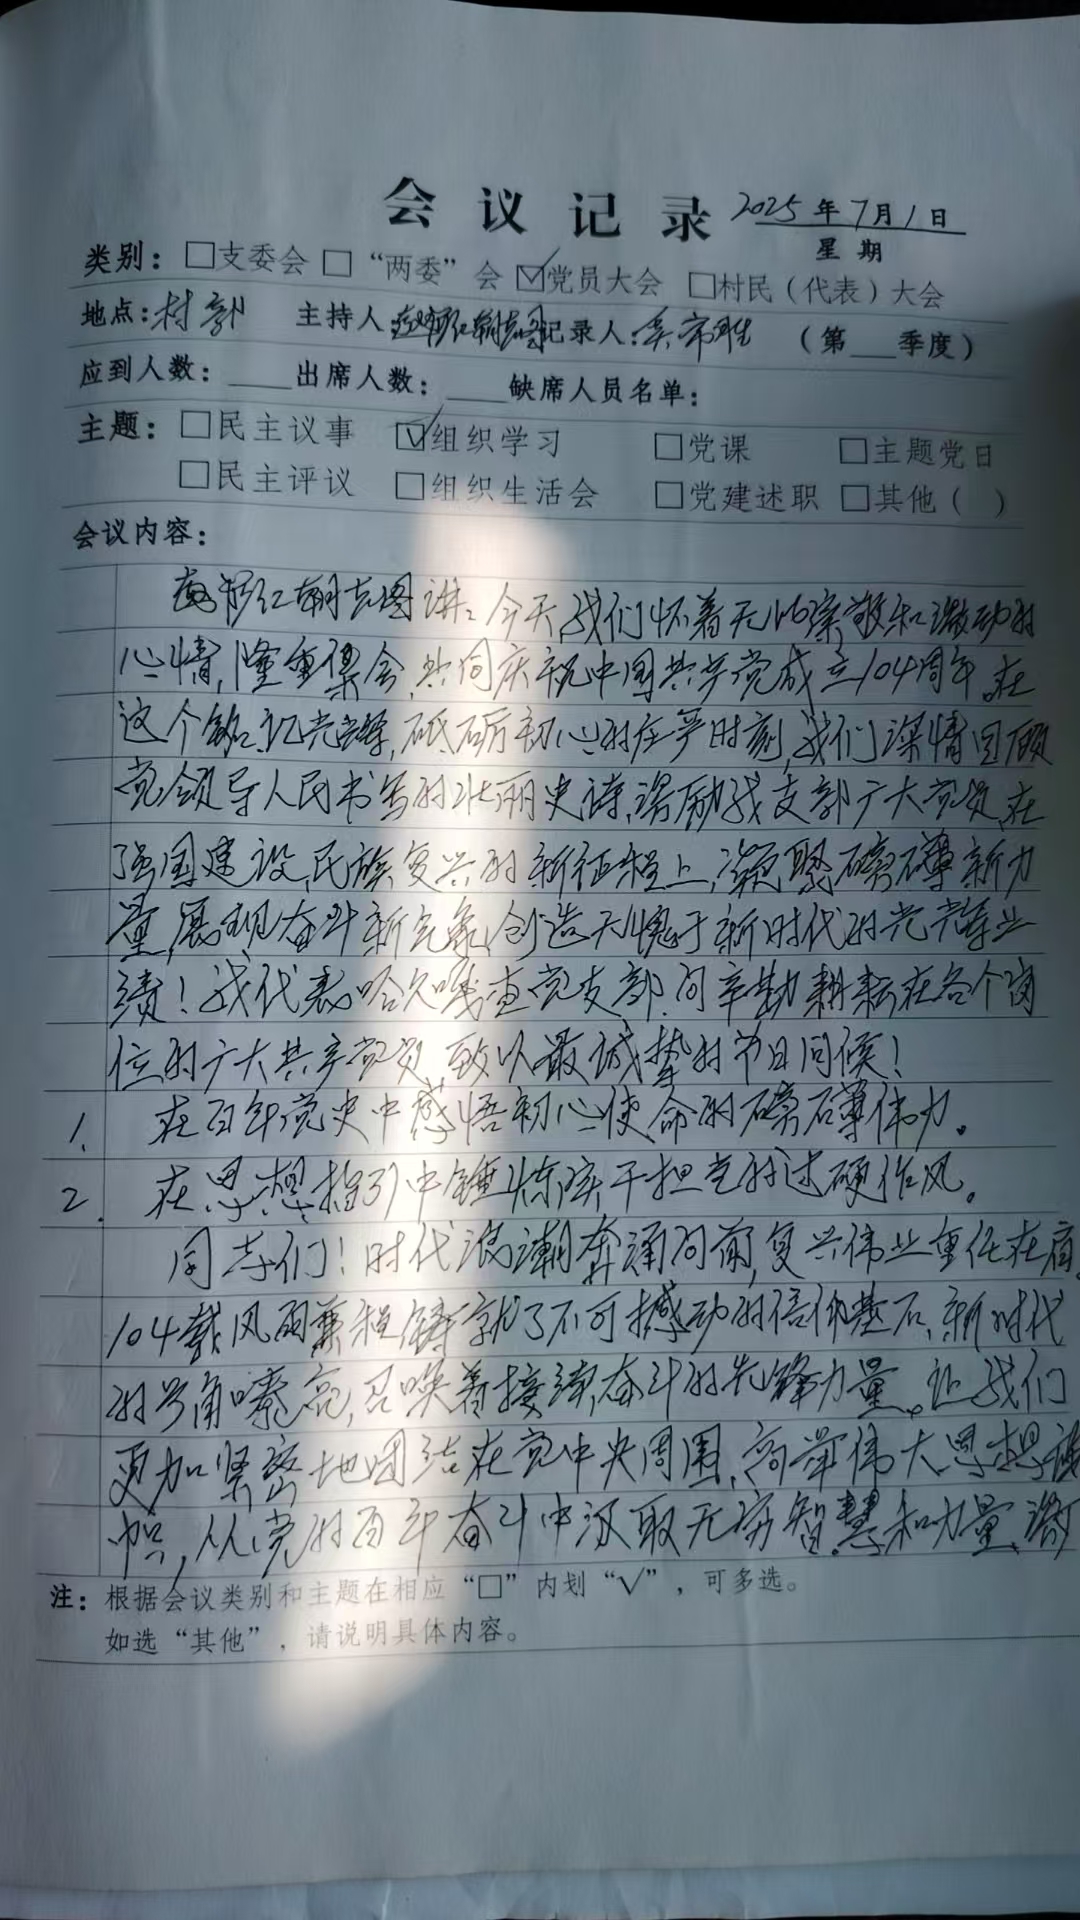 会议记录 2025年7月1日
星期
类别：□支委会 □“两委”会 ☑党员大会 □村民（代表）大会
地点：村部 主持人： 朝克图 记录人： （第___季度）
应到人数：____出席人数：____缺席人员名单：
主题：□民主议事 ☑组织学习 □党课 □主题党日
□民主评议 □组织生活会 □党建述职 □其他（ ）
会议内容：
朝克图讲：今天，我们怀着无比崇敬和激动的
心情，隆重集会，共同庆祝中国共产党成立104周年。在
这个铭记光辉，砥砺初心的庄严时刻，我们深情回顾
党领导人民书写的壮丽史诗，激励我支部广大党员，在
强国建设、民族复兴的新征程上，凝聚磅礴新力
量，展现奋斗新气象，创造无愧于新时代的光辉业
绩！我代表哈久嘎查党支部，向辛勤耕耘在各个岗
位的广大共产党员致以最诚挚的节日问候！
1. 在百年党史中感悟初心使命的磅礴伟力。
2. 在思想指引中锤炼实干担当的过硬作风。
同志们！时代浪潮奔涌向前，复兴伟业重任在肩。
104载风雨兼程铸就了不可撼动的信仰基石，新时代
的号角嘹亮，召唤着接续奋斗的先锋力量。让我们
更加紧密地团结在党中央周围，高举伟大思想旗
帜，从党的百年奋斗中汲取无穷智慧和力量，
注：根据会议类别和主题在相应“□”内划“√”，可多选。
如选“其他”，请说明具体内容。